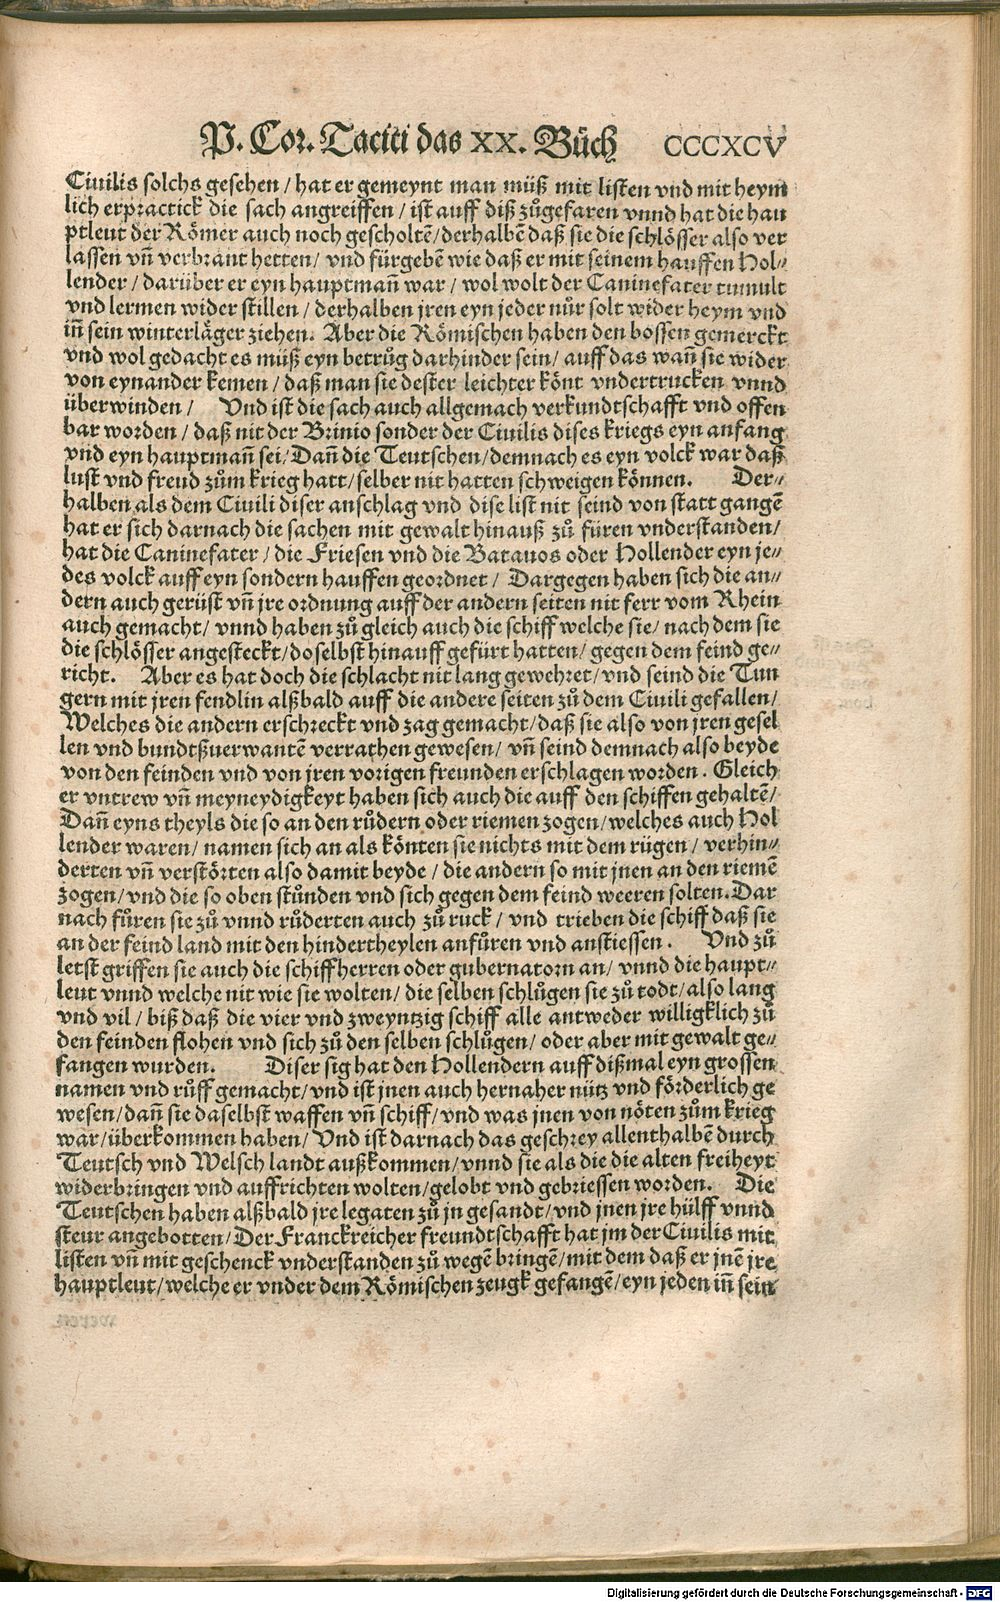 P. Cor. Taciti das XX. Bůch CCCXCV
Ciuilis solchs gesehen / hat er gemeynt man müß mit listen vnd mit heym
lich er practick die sach angreiffen / ist auff diß zůgefaren vnnd hat die hau
ptleut der Römer auch noch gescholtẽ / derhalbẽ daß sie die schlösser also ver
lassen vñ verbrant hetten / vnd fürgebẽ wie daß er mit seinem hauffen Hol⸗
lender / darüber er eyn hauptmañ war / wol wolt der Caninefater tumult
vnd lermen wider stillen / derhalben jren eyn jeder nůr solt wider heym vnd
iñ sein winterläger ziehen. Aber die Römischen haben den bossen gemerckt
vnd wol gedacht es müß eyn betrůg darhinder sein / auff das wañ sie wider
von eynander kemen / daß man sie dester leichter könt vndertrucken vnnd
überwinden / Vnd ist die sach auch allgemach verkundtschafft vnd offen
bar worden / daß nit der Brinio sonder der Ciuilis dises kriegs eyn anfang
vnd eyn hauptmañ sei / Dañ die Teutschen / demnach es eyn volck war daß
lust vnd freud zům krieg hatt / selber nit hatten schweigen können. Der⸗
halben als dem Ciuili diser anschlag vnd dise list nit seind von statt gangẽ
hat er sich darnach die sachen mit gewalt hinauß zů füren vnderstanden /
hat die Caninefater / die Friesen vnd die Batauos oder Hollender eyn je⸗
des volck auff eyn sondern hauffen geordnet / Dargegen haben sich die an⸗
dern auch gerüst vñ jre ordnung auff der andern seiten nit ferr vom Rhein
auch gemacht / vnnd haben zů gleich auch die schiff welche sie / nach dem sie
die schlösser angesteckt / doselbst hinauff gefürt hatten / gegen dem feind ge⸗
richt. Aber es hat doch die schlacht nit lang gewehret / vnd seind die Tun
gern mit jren fendlin alßbald auff die andere seiten zů dem Ciuili gefallen /
Welches die andern erschreckt vnd zag gemacht / daß sie also von jren gesel
len vnd bundtßuerwantẽ verrathen gewesen / vñ seind demnach also beyde
von den feinden vnd von jren vorigen freunden erschlagen worden. Gleich
er vntrew vñ meyneydigkeyt haben sich auch die auff den schiffen gehaltẽ /
Dañ eyns theyls die so an den růdern oder riemen zogen / welches auch Hol
lender waren / namen sich an als könten sie nichts mit dem rügen / verhin⸗
derten vñ verstörten also damit beyde / die andern so mit jnen an den riemẽ
zogen / vnd die so oben stůnden vnd sich gegen dem feind weeren solten. Dar
nach fůren sie zů vnnd růderten auch zů ruck / vnd trieben die schiff daß sie
an der feind land mit den hindertheylen anfůren vnd anstiessen. Vnd zů
letst griffen sie auch die schiffherren oder gubernatorn an / vnnd die haupt⸗
leut vnnd welche nit wie sie wolten / die selben schlůgen sie zů todt / also lang
vnd vil / biß daß die vier vnd zweyntzig schiff alle antweder willigklich zů
den feinden flohen vnd sich zů den selben schlůgen / oder aber mit gewalt ge⸗
fangen wurden. Diser sig hat den Hollendern auff dißmal eyn grossen
namen vnd růff gemacht / vnd ist jnen auch hernaher nütz vnd förderlich ge
wesen / dañ sie daselbst waffen vñ schiff / vnd was jnen von nöten zům krieg
war / überkommen haben / Vnd ist darnach das geschrey allenthalbẽ durch
Teutsch vnd Welsch landt außkommen / vnnd sie als die die alten freiheyt
widerbringen vnd auffrichten wolten / gelobt vnd gebriessen worden. Die
Teutschen haben alßbald jre legaten zů jn gesandt / vnd jnen jre hülff vnnd
steur angebotten / Der Franckreicher freundtschafft hat jm der Ciuilis mit
listen vñ mit geschenck vnderstanden zů wegẽ bringẽ / mit dem daß er jnẽ jre
hauptleut / welche er vnder dem Römischen zeugk gefangẽ / eyn jeden iñ sein
Digitalisierung gefördert durch die Deutsche Forschungsgemeinschaft - DFG